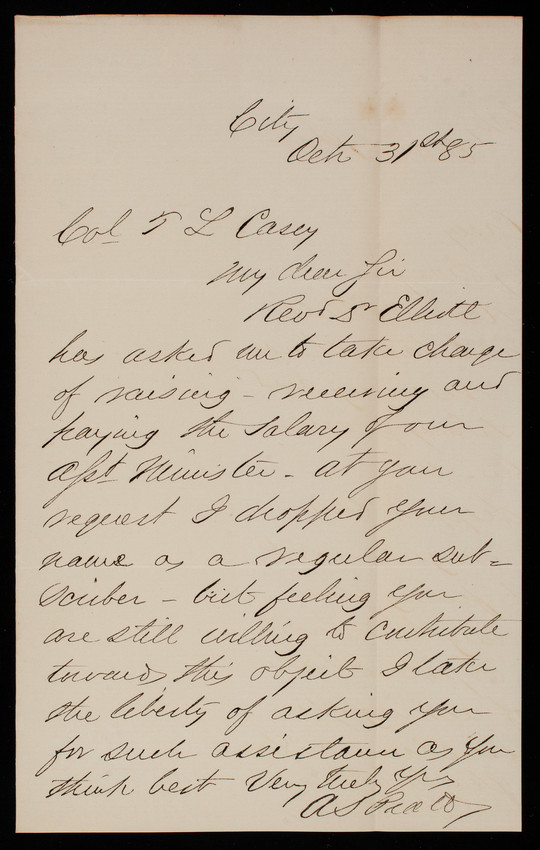 City
Octr 31st 85
Col T L Casey
My dear Sir
Revd Dr Elliott
has asked me to take charge
of raising - receiving and
paying the Salary of our
Asst Minister - at your
request I dropped your
name as a regular sub=
scriber - but feeling you
are still willing to contribute
towards this object I take
the liberty of asking you
for such assistance as you
think best Very truly Yrs
A S Pratt